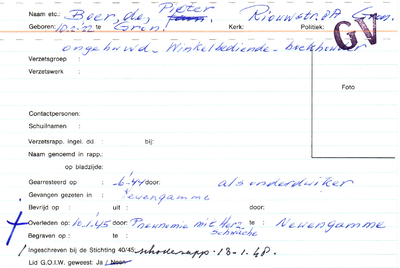 Naam etc.: Boer, de, Pieter Riouwstr. Gron.
Geboren: 10-2-22 te Gron. Kerk: Politiek:
GV
ongehuwd - Winkelbediende - boekhouder
Verzetsgroep :
Verzetswerk :
Foto
Contactpersonen:
Schuilnamen :
Verzetsrapp. ingel. dd : bij:
Naam genoemd in rapp.:
op bladzijde:
Gearresteerd op : -6-44 door: als onderduiker
Gevangen gezeten in : Neuengamme
Bevrijd op : uit : door:
Overleden op: 10.1.45 door: Pneumonie mit Herz te : Neuengamme
Schwäche
Begraven op : te :
Ingeschreven bij de Stichting 40/45 13-1-48.
Lid G.O.I.W. geweest: Ja / Neen